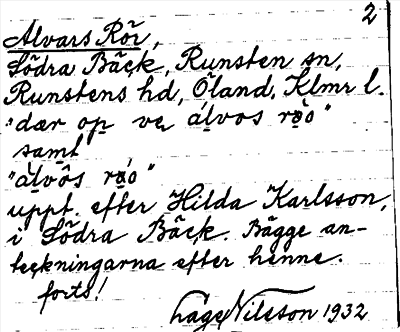 2
Alvars Rör,
Södra Bäck, Runsten sn,
Runstens hd, Öland. Klmr l.
"dar op ve álvos rǫ́o"
samt
"álvôs rǫ́o"
uppt. efter Hilda Karlsson,
i Södra Bäck. Bägge an-
teckningarna efter henne.
forts!
Lage Nilsson 1932